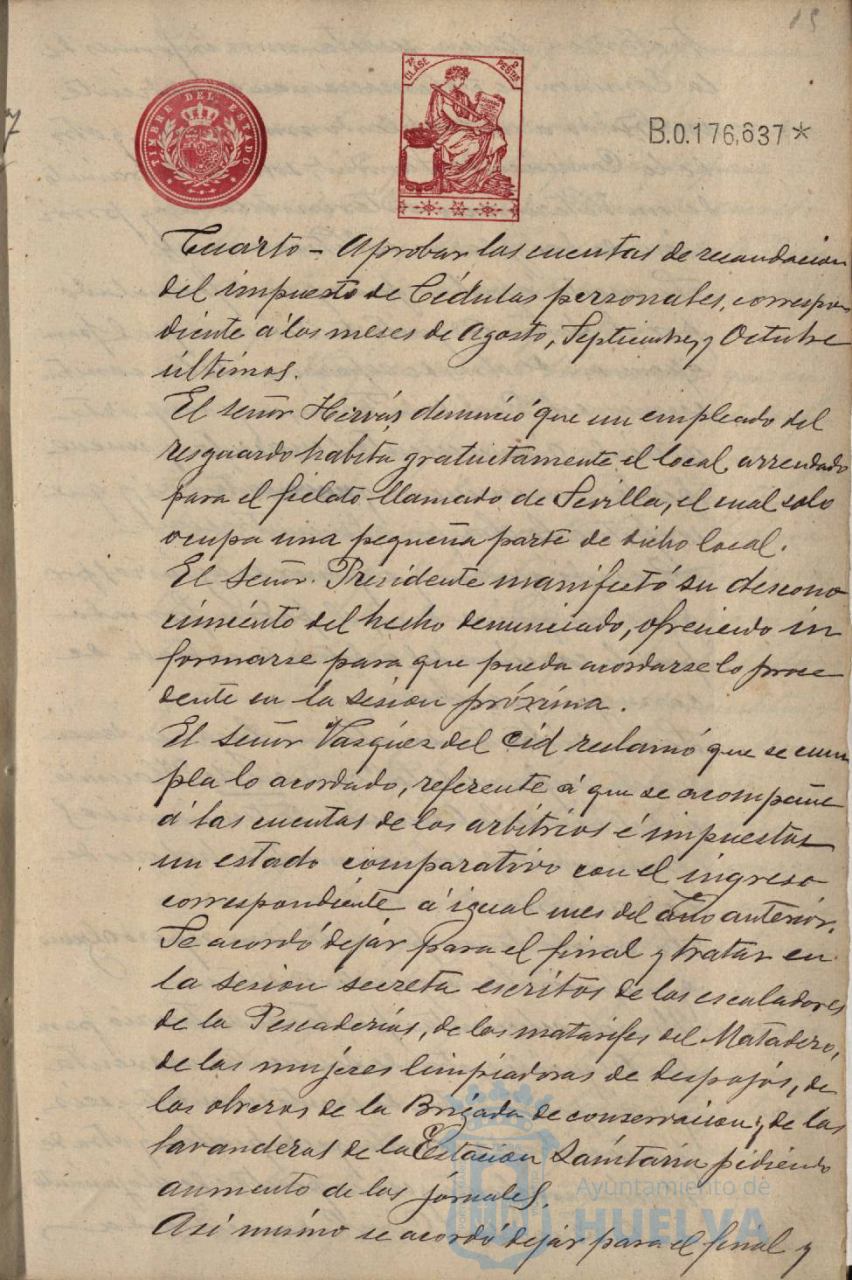 15
TIMBRE DEL ESTADO
7ª CLASE
2 PESETAS
B.0.176,637*
Cuarto - Aprobar las cuentas de recaudacion
del impuesto de Cédulas personales, correspon
diente á los meses de Agosto, Septiembre, y Octubre
últimos.
El señor Hervás denunció que un empleado del
resguardo habita gratuitamente el local arrendado
para el fielato llamado de Sevilla, el cual solo
ocupa una pequeña parte de dicho local.
El Señor Presidente manifestó su descono
cimiento del hecho denunciado, ofreciendo in
formarse para que pueda acordarse lo proce
dente en la sesion próxima.
El señor Vazquez del Cid reclamó que se cum
pla lo acordado, referente á que se acompañe
á las cuentas de los arbitrios é impuestos
un estado comparativo con el ingreso
correspondiente á igual mes del año anterior.
Se acordó dejar para el final y tratar en
la sesion secreta escritos de los escaladores
de la Pescaderias, de los matarifes del Matadero,
de las mujeres limpiadoras de despojos, de
los obreros de la Brigada de conservacion y de las
lavanderas de la Estacion Sanitaria pidiendo
aumento de los jornales.
Asi mismo se acordó dejar para el final y
Ayuntamiento de
HUELVA